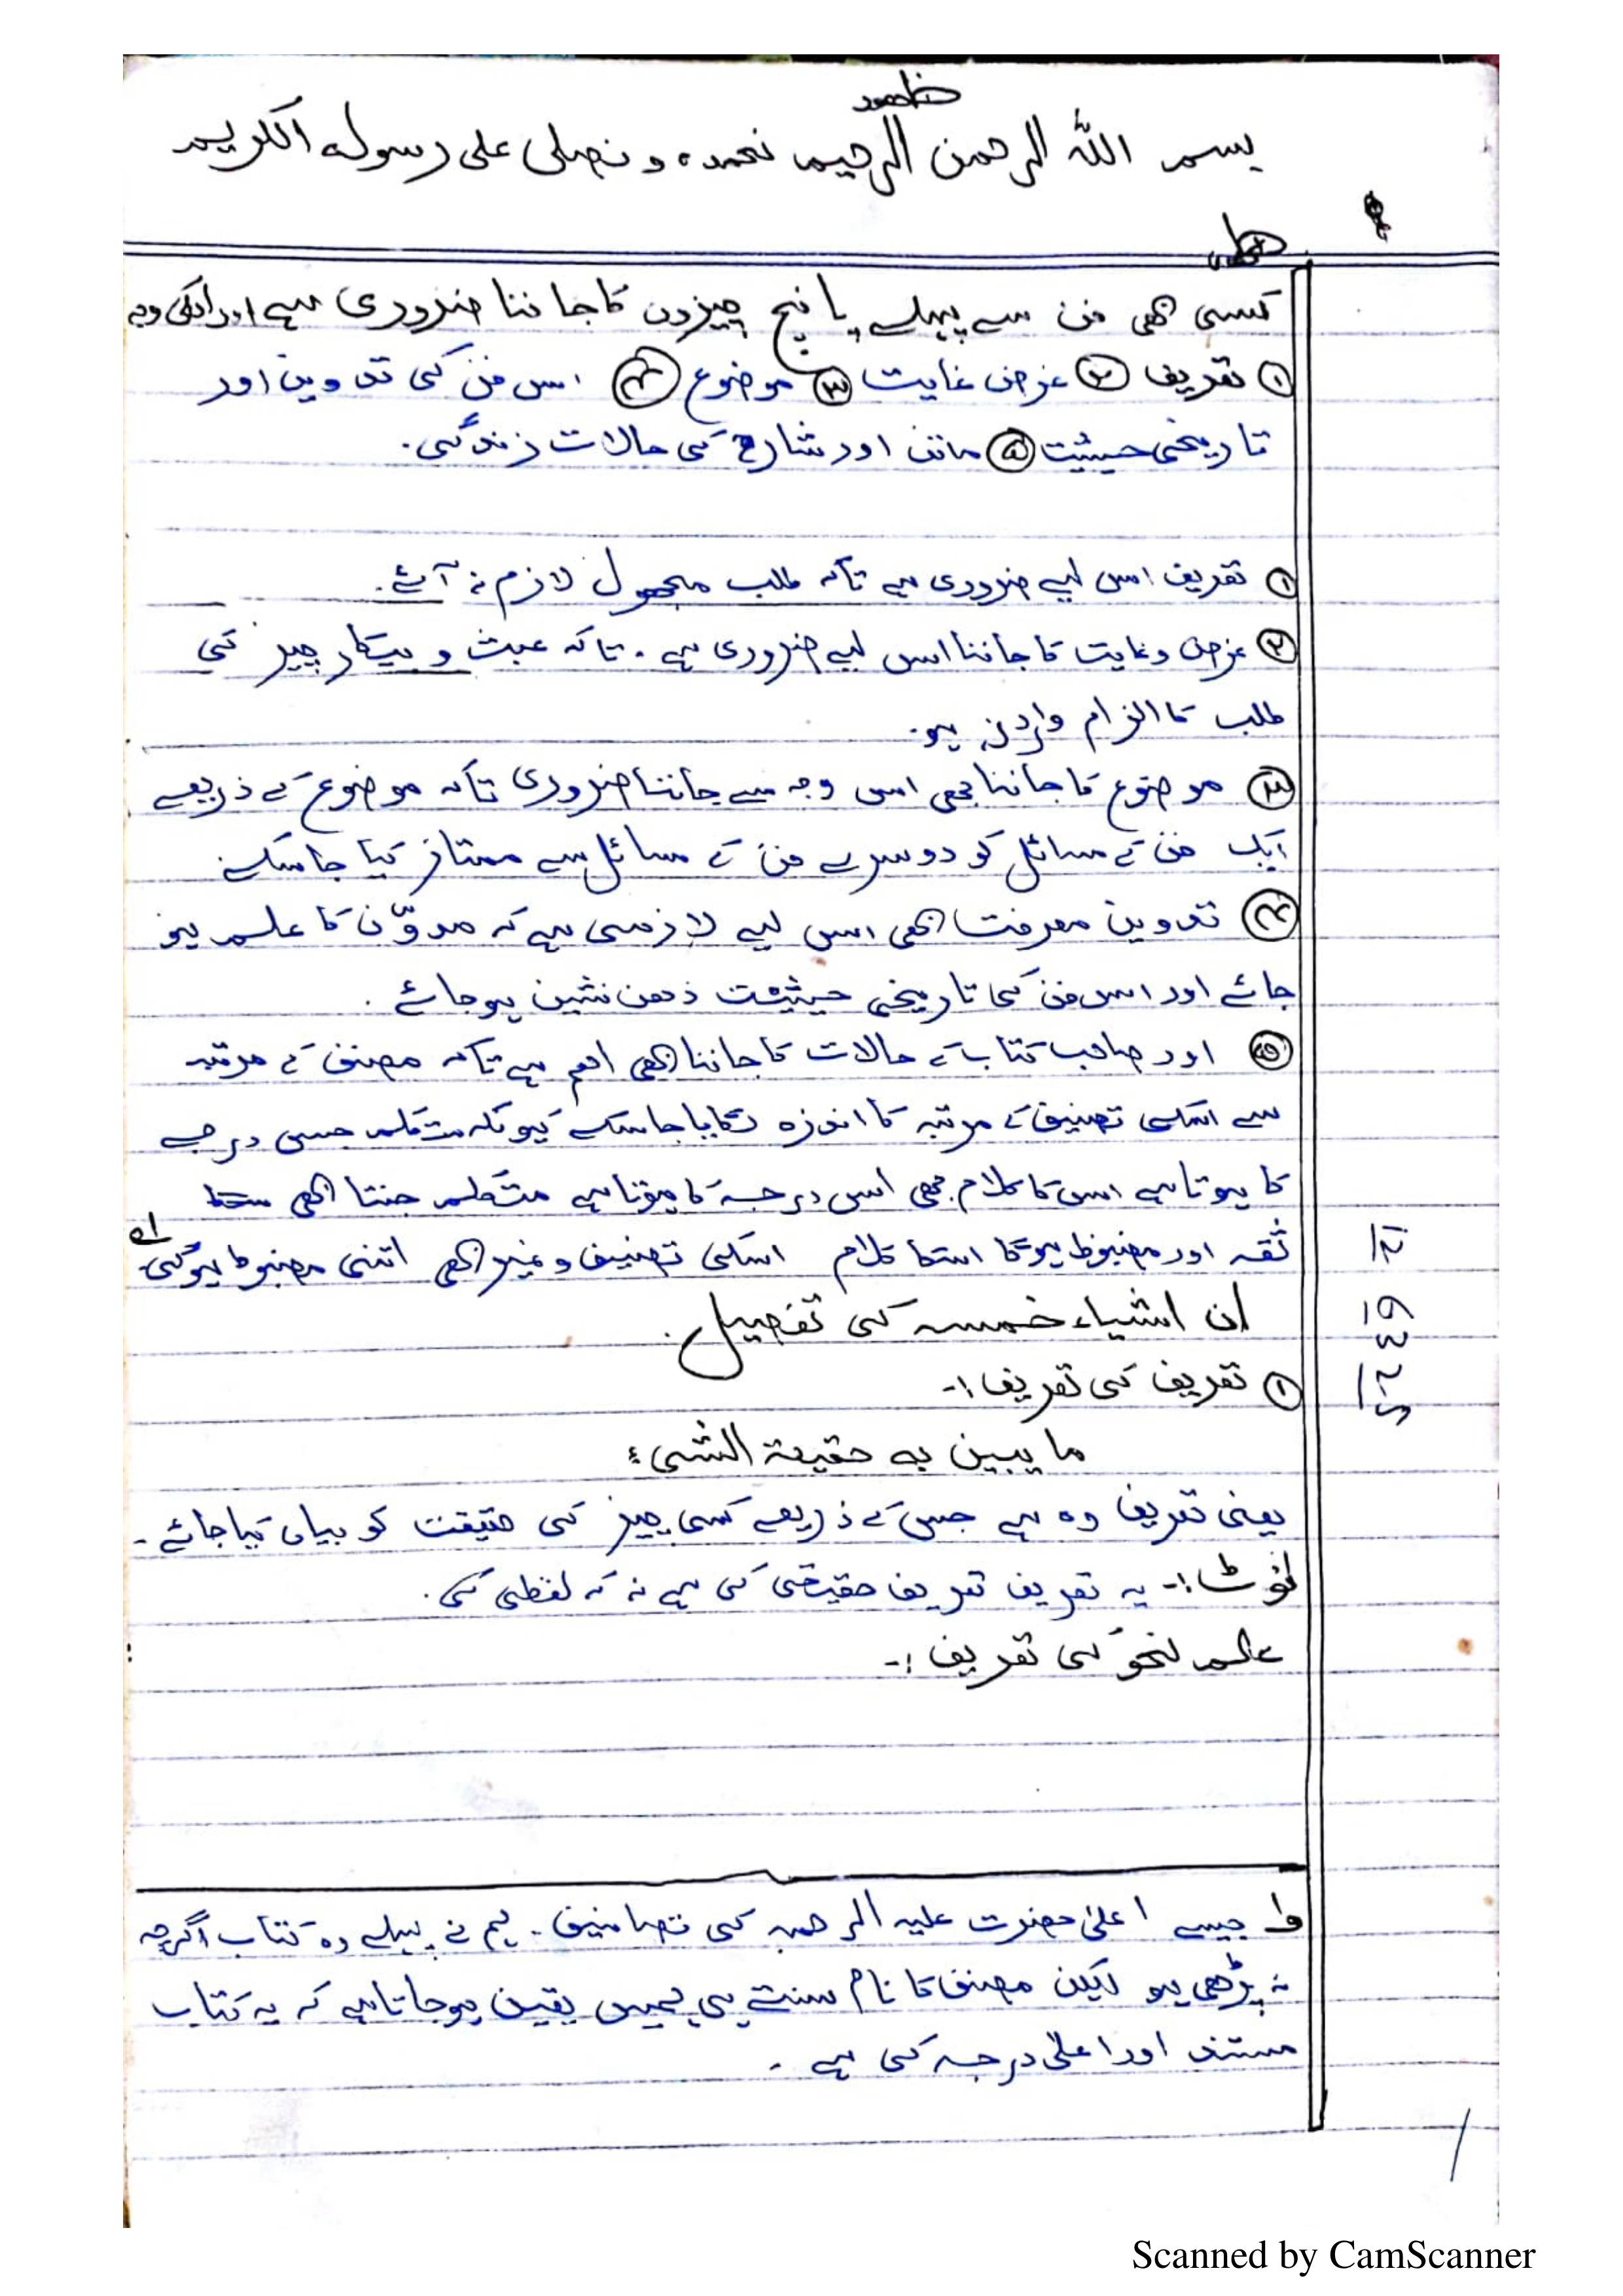 بسم اللہ الرحمن الرحیم نحمدہ و نصلی علی رسولہ الکریم
کسی بھی فن سے پہلے پانچ چیزوں کا جاننا ضروری ہے اور انکی وجہ
① تعریف ② غرض غایت ③ موضوع ④ اس فن کی تدوین اور
تاریخی حیثیت ⑤ ماتن اور شارح کی حالات زندگی۔
① تعریف اس لیے ضروری ہے تاکہ طلب مجھول لازم نہ آئے۔
② غرض وغایت کا جاننا اس لیے ضروری ہے۔ تاکہ عبث و بیکار چیز کی
طلب کا الزام وارد نہ ہو۔
③ موضوع کا جاننا بھی اس وجہ سے جاننا ضروری تاکہ موضوع کے ذریعے
ایک فن کے مسائل کو دوسرے فن کے مسائل سے ممتاز کیا جاسکے
④ تدوین معرفت بھی اس لیے لازمی ہے کہ مدوّن کا علم ہو
جائے اور اس فن کی تاریخی حیثیت ذھن نشین ہوجائے۔
⑤ اور صاحب کتاب کے حالات کا جاننا بھی اھم ہے تاکہ مصنف کے مرتبہ
سے اسکی تصنیف کے مرتبہ کا اندزہ لگایا جاسکے کیونکہ متکلم جس درجے
کا ہوتا ہے اس کا کلام بھی اس درجہ کا ہوتا ہے متکلم جتنا بھی
ثقہ اور مضبوط ہوگا اسکا کلام اسکی تصنیف وغیرہ بھی اتنی مضبوط ہوگی
ان اشیاء خمسہ کی تفصیل۔
① تعریف کی تعریف :-
ما یبین بہ حقیقۃ الشیء
یعنی تعریف وہ ہے جس کے ذریعے کسی چیز کی حقیقت کو بیان کیا جائے۔
نوٹ :- یہ تعریف تعریف حقیقی کی ہے نہ کہ لفظی کی۔
علم نحو کی تعریف :-
جیسے اعلیٰ حضرت علیہ الرحمہ کی تصانیف۔ ہم نے پہلے وہ کتاب اگرچہ
نہ پڑھی ہو لیکن مصنف کا نام سنتے ہی ہمیں یقین ہوجاتا ہے کہ یہ کتاب
مستند اور اعلیٰ درجہ کی ہے۔
Scanned by CamScanner